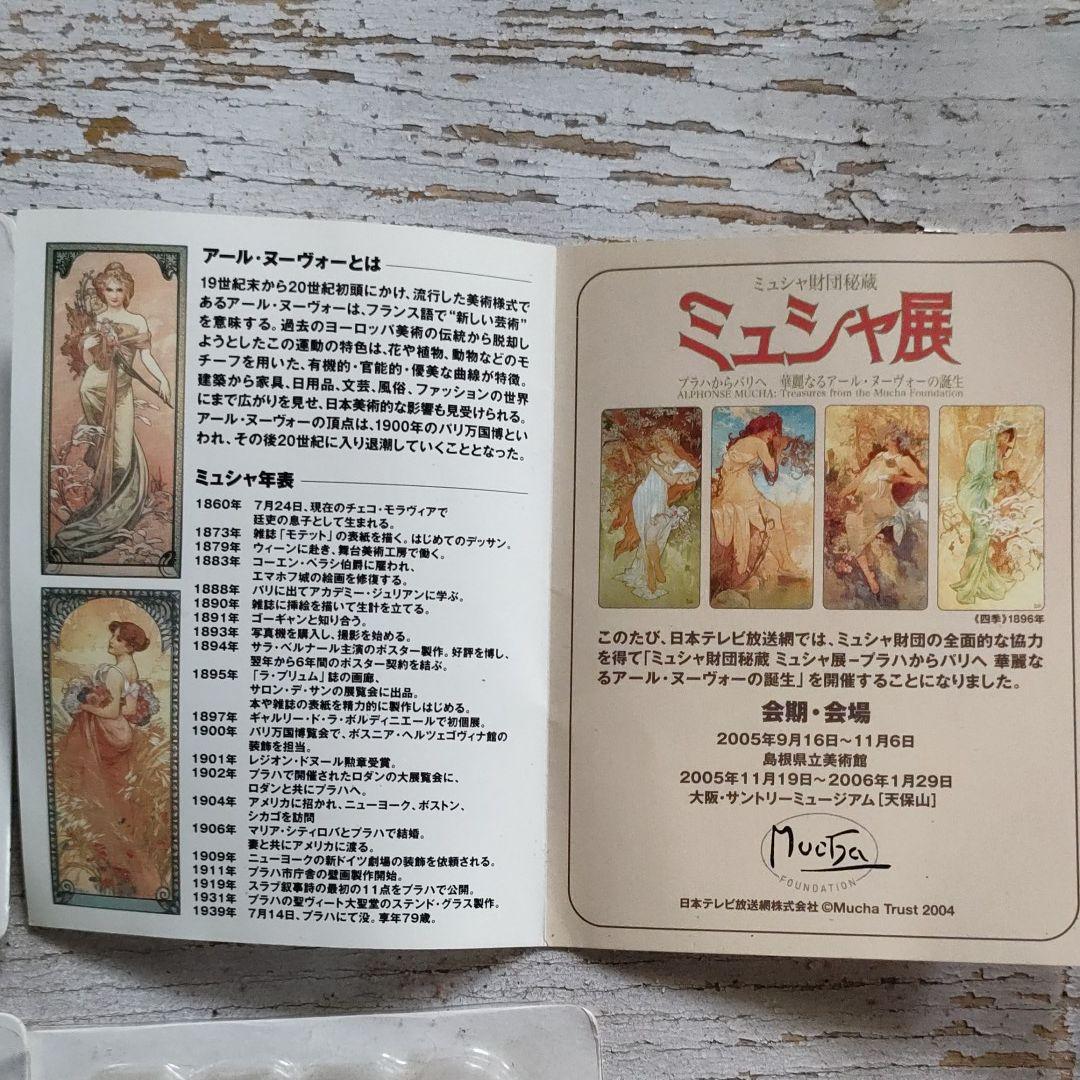 アール・ヌーヴォーとは
19世紀末から20世紀初頭にかけ、流行した美術様式で
あるアール・ヌーヴォーは、フランス語で"新しい芸術"
を意味する。過去のヨーロッパ美術の伝統から脱却し
ようとしたこの運動の特色は、花や植物、動物などのモ
チーフを用いた、有機的・官能的・優美な曲線が特徴。
建築から家具、日用品、文芸、風俗、ファッションの世界
にまで広がりを見せ、日本美術的な影響も見受けられる。
アール・ヌーヴォーの頂点は、1900年のパリ万国博とい
われ、その後20世紀に入り退潮していくこととなった。
ミュシャ年表
1860年 7月24日、現在のチェコ・モラヴィアで
廷吏の息子として生まれる。
1873年 雑誌「モテット」の表紙を描く。はじめてのデッサン。
1879年 ウィーンに赴き、舞台美術工房で働く。
1883年 コーエン・ベラシ伯爵に雇われ、
エマホフ城の絵画を修復する。
1888年 パリに出てアカデミー・ジュリアンに学ぶ。
1890年 雑誌に挿絵を描いて生計を立てる。
1891年 ゴーギャンと知り合う。
1893年 写真機を購入し、撮影を始める。
1894年 サラ・ベルナール主演のポスター製作。好評を博し、
翌年から6年間のポスター契約を結ぶ。
1895年 「ラ・プリュム」誌の画廊、
サロン・デ・サンの展覧会に出品。
本や雑誌の表紙を精力的に製作しはじめる。
1897年 ギャルリー・ド・ラ・ボルディニエールで初個展。
1900年 パリ万国博覧会で、ボスニア・ヘルツェゴヴィナ館の
装飾を担当。
1901年 レジオン・ドヌール勲章受賞。
1902年 プラハで開催されたロダンの大展覧会に、
ロダンと共にプラハへ。
1904年 アメリカに招かれ、ニューヨーク、ボストン、
シカゴを訪問
1906年 マリア・シティロバとプラハで結婚。
妻と共にアメリカに渡る。
1909年 ニューヨークの新ドイツ劇場の装飾を依頼される。
1911年 プラハ市庁舎の壁画製作開始。
1919年 スラブ叙事詩の最初の11点をプラハで公開。
1931年 プラハの聖ヴィート大聖堂のステンド・グラス製作。
1939年 7月14日、プラハにて没。享年79歳。
ミュシャ財団秘蔵
ミュシャ展
プラハからパリへ 華麗なるアール・ヌーヴォーの誕生
ALPHONSE MUCHA: Treasures from the Mucha Foundation
《四季》1896年
このたび、日本テレビ放送網では、ミュシャ財団の全面的な協力
を得て「ミュシャ財団秘蔵 ミュシャ展–プラハからパリへ 華麗な
るアール・ヌーヴォーの誕生」を開催することになりました。
会期・会場
2005年9月16日〜11月6日
島根県立美術館
2005年11月19日〜2006年1月29日
大阪・サントリーミュージアム[天保山]
Mucha
FOUNDATION
日本テレビ放送網株式会社 ©Mucha Trust 2004